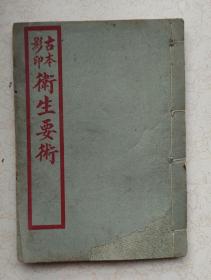 古本影印
衛生要術